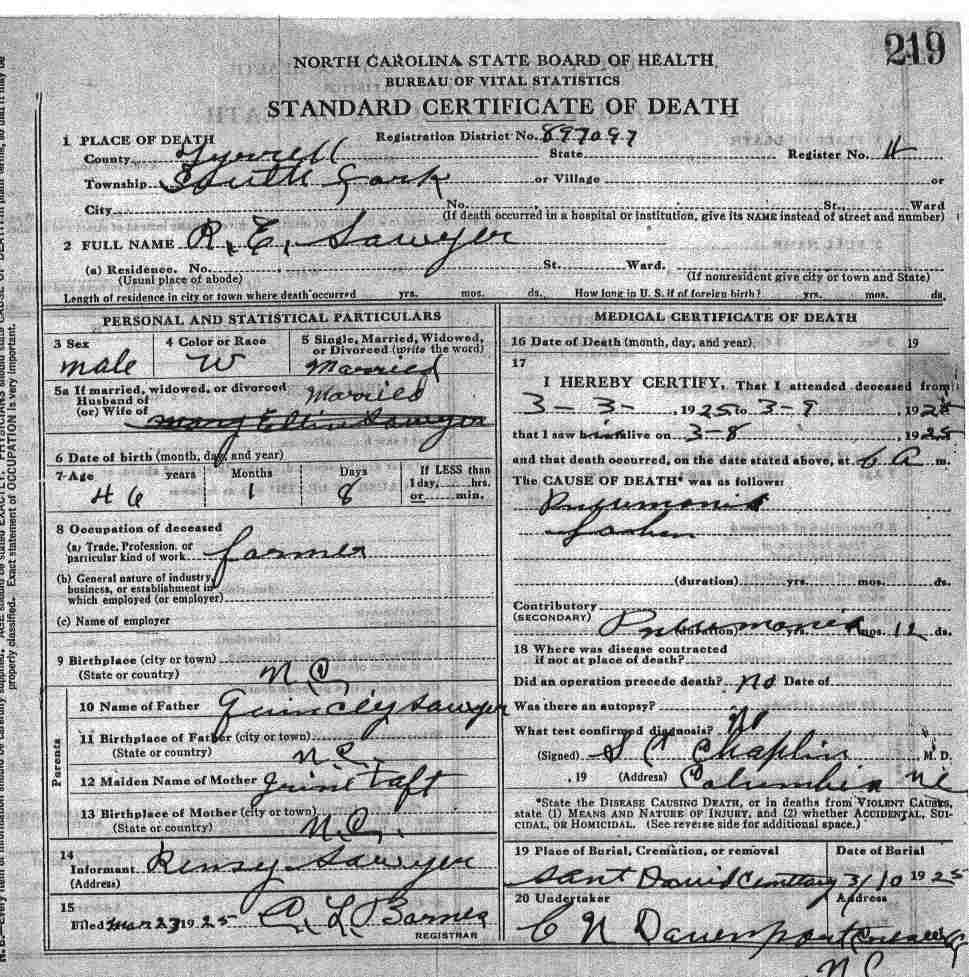 219
NORTH CAROLINA STATE BOARD OF HEALTH
BUREAU OF VITAL STATISTICS
STANDARD CERTIFICATE OF DEATH
1 PLACE OF DEATH Registration District No. 897097
County Tyrrell State Register No. 11
Township South Fork or Village or
City No. St., Ward
(If death occurred in a hospital or institution, give its NAME instead of street and number)
2 FULL NAME R. E. Sawyer
(a) Residence. No. St. Ward.
(Usual place of abode) (If nonresident give city or town and State)
Length of residence in city or town where death occurred yrs. mos. ds. How long in U. S. if of foreign birth? yrs. mos. ds.
PERSONAL AND STATISTICAL PARTICULARS
3 Sex 4 Color or Race 5 Single, Married, Widowed, or Divorced (write the word)
male W Married
5a If married, widowed, or divorced Married
Husband of
(or) Wife of Mary Sawyer
6 Date of birth (month, day, and year)
7-Age years Months Days If LESS than
1 day, hrs.
or min.
46 1 8
8 Occupation of deceased
(a) Trade, Profession, or
particular kind of work farmer
(b) General nature of industry,
business, or establishment in
which employed (or employer)
(c) Name of employer
9 Birthplace (city or town)
(State or country) N. C.
Parents
10 Name of Father Sawyer
11 Birthplace of Father (city or town)
(State or country) N. C.
12 Maiden Name of Mother Taft
13 Birthplace of Mother (city or town)
(State or country) N. C.
14
Informant Sawyer
(Address)
15
Filed Mar 23 1925 A. L. Barnes
REGISTRAR
MEDICAL CERTIFICATE OF DEATH
16 Date of Death (month, day, and year) 19
17
I HEREBY CERTIFY, That I attended deceased from
3-3-, 1925 to 3-9, 1925
that I saw him alive on 3-8, 1925
and that death occurred, on the date stated above, at 6 A m.
The CAUSE OF DEATH* was as follows:
Pneumonia
(duration) yrs. mos. ds.
Contributory
(SECONDARY) Pneumonia
(duration) yrs. mos. 12 ds.
18 Where was disease contracted
if not at place of death?
Did an operation precede death? No Date of
Was there an autopsy?
What test confirmed diagnosis? No
(Signed) S C Chaplin, M. D.
, 19 (Address) Columbia NC
*State the DISEASE CAUSING DEATH, or in deaths from VIOLENT CAUSES,
state (1) MEANS AND NATURE OF INJURY, and (2) whether ACCIDENTAL, SUI-
CIDAL, OR HOMICIDAL. (See reverse side for additional space.)
19 Place of Burial, Cremation, or removal Date of Burial
Sant David Cemetary 3/10 1925
20 Undertaker Address
C N Davenport
N C
properly classified. Exact statement of OCCUPATION is very important.